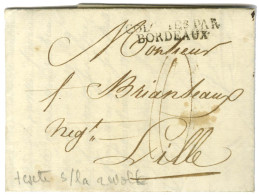 PAR
BORDEAUX
Monsieur
f. Brianteaux
negt.
Lille
6
texte s/la